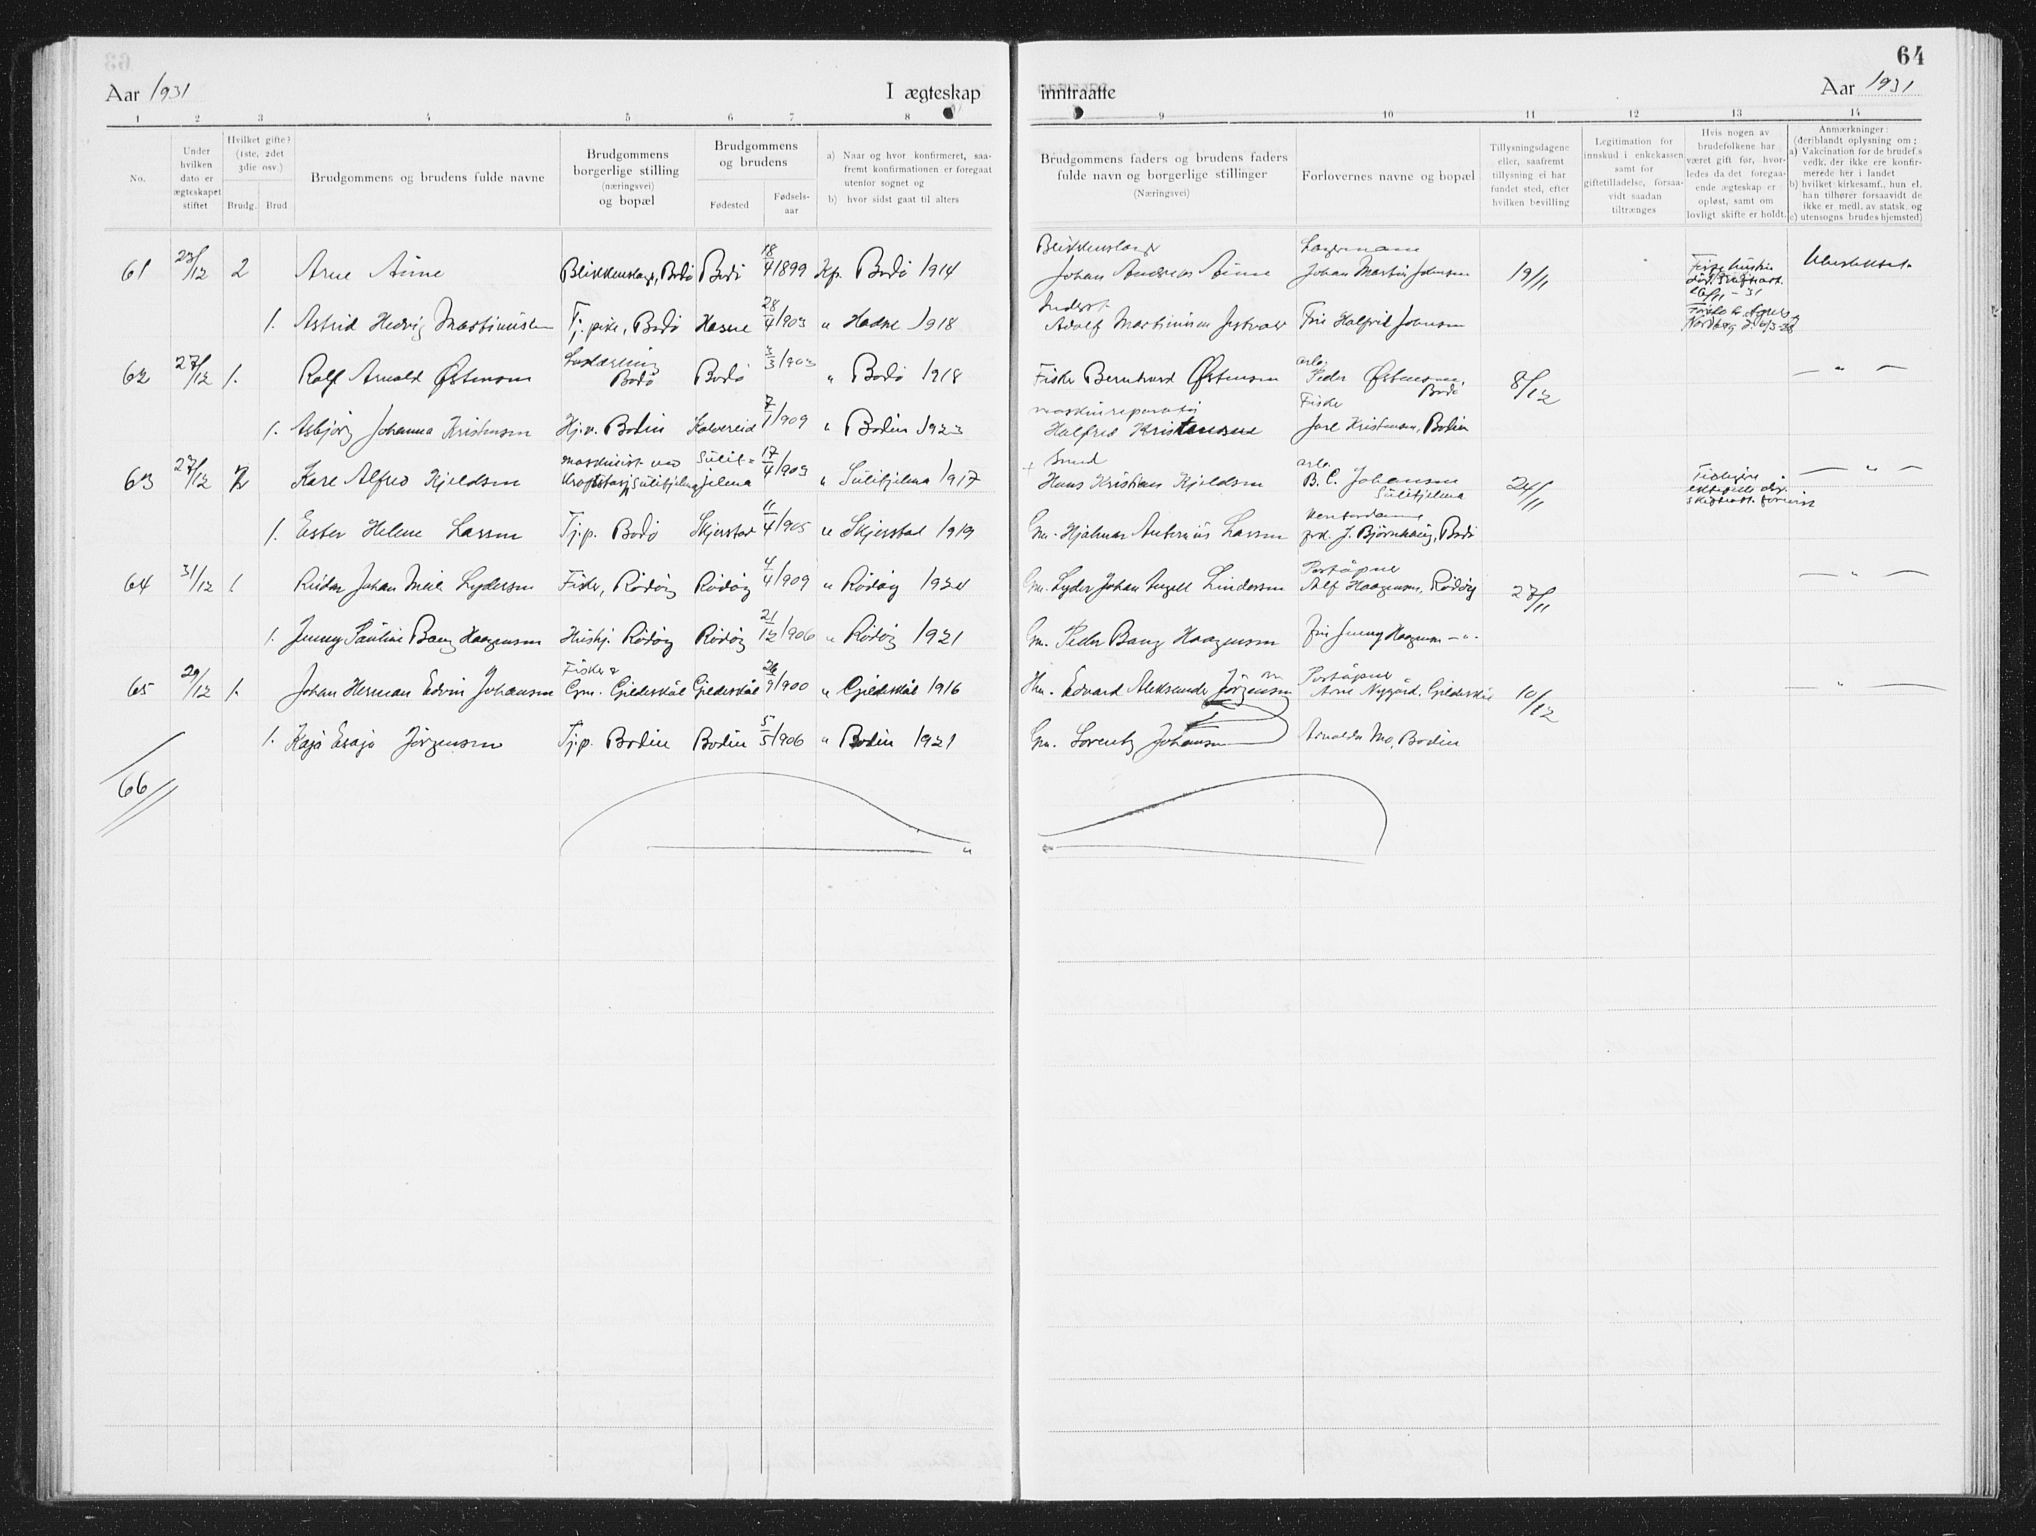 64
Aar 1931 I ægteskap inntraatte Aar 1931
1 2 3 4 5 6 7 8 9 10 11 12 13 14
No.
Under hvilken dato er ægteskapet stiftet
Hvilket gifte? (1ste, 2det 3die osv.)
Brudg. Brud
Brudgommens og brudens fulde navne
Brudgommens borgerlige stilling (næringsvei) og bopæl
Brudgommens og brudens
Fødested Fødsels-aar
a) Naar og hvor konfirmeret, saafremt konfirmationen er foregaat utenfor sognet og
b) hvor sidst gaat til alters
Brudgommens faders og brudens faders fulde navn og borgerlige stillinger (Næringsvei)
Forlovernes navne og bopæl
Tillysningsdagene eller, saafremt tillysning ei har fundet sted, efter hvilken bevilling
Legitimation for innskud i enkekassen samt for giftetilladelse, forsaavidt saadan tiltrænges
Hvis nogen av brudefolkene har været gift før, hvorledes da det foregaaende ægteskap er opløst, samt om lovligt skifte er holdt.
Anmærkninger: (deriblandt oplysning om;
a) Vakcination for de brudef.s vedk. der ikke ere konfirmerede her i landet
b) hvilket kirkesamf., hun el. han tilhører forsaavidt de ikke er medl. av statsk. og
c) utensogns brudes hjemsted)
61 23/12 2 Arne Aune Blikkenslager, Bodø Bodø 18/4 1899 Kfr. Bodø 1914 Blikkenslager Johan Andreas Aune Johan Martin Johnsen 19/11
1. Astrid Hedvig Martinussen Tj. pike, Bodø 28/4 1903 " 1918 Adolf Martinussen Fru Halfrid Johnsen
62 27/12 1. Rolf Arnold Østensen Bodø Bodø 3/3 1903 " Bodø 1918 Fisker Bernhard Østensen arb. Peder Østensen, Bodø 8/12 — " —
1. Asbjørg Johanna Kristensen Hj.v. Bodin Kalvereid 7/1 1909 " Bodin 1923 maskinreparatør Halfred Kristensen Fisker Jarl Kristensen, Bodin
63 27/12 2 Karl Alfred Kjeldsen maskinist ved Kraftstasj. Sulitjelma Sulitjelma 17/4 1903 " Sulitjelma 1917 Smed Hans Kristian Kjeldsen arb. B. C. Johansen Sulitjelma 24/11 — " —
1. Ester Helene Larsen Tj.p. Bodø Skjerstad 11/4 1905 " Skjerstad 1919 Gm. Hjalmar Antonius Larsen J. Bjørnhaug, Bodø
64 31/12 1 Reidar Johan Meil Lydersen Fisker, Rødøy Rødøy 4/4 1909 " Rødøy 1924 Gm. Lyder Johan Angell Lindersen Poståpner Alf Haagensen, Rødøy 27/11 — " —
1. Jenny Pauline Bang Haagensen Hushj. Rødøy Rødøy 21/12 1906 " Rødøy 1921 Gm. Peder Bang Haagensen Fru Jenny Haagensen — " -
65 29/12 1. Johan Herman Edvin Johansen Fisker & Gm. Gildeskål Gildeskål 26/9 1900 " Gildeskål 1916 Hm. Edvard Aleksander Jørgensen Poståpner Arne Nygård, Gildeskål 10/12 — " —
1. Kaja Esaja Jørgensen Tj.p. Bodin Bodin 5/5 1906 " Bodin 1921 Gm. Lorentz Johansen Arnoldus Mo, Bodin
66